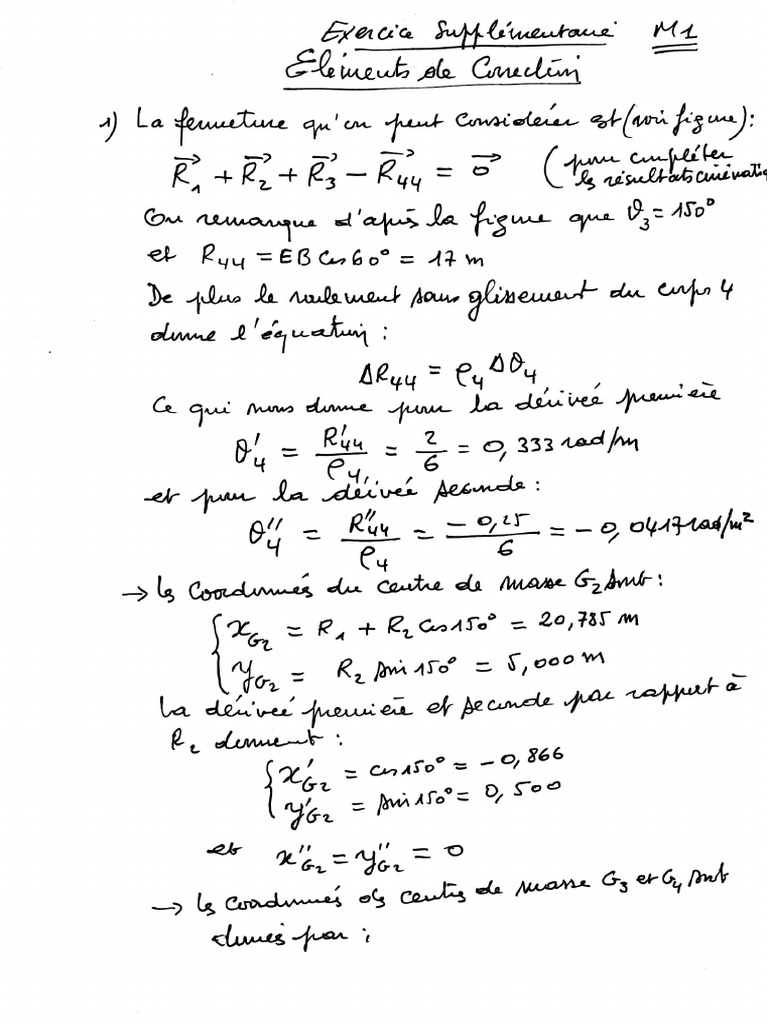 Exercice Supplémentaire M1
Eléments de Correction
1) La fermeture qu'on peut considérer est (voir figure):
R⃗₁ + R⃗₂ + R⃗₃ − R⃗₄₄ = 0⃗ (pour compléter
les résultats cinématiq
On remarque d'après la figure que θ₃ = 150°
et R₄₄ = EB cos 60° = 17 m
De plus le roulement sans glissement du corps 4
donne l'équation :
ΔR₄₄ = ρ₄ Δθ₄
Ce qui nous donne pour la dérivée première
θ'₄ = R'₄₄/ρ₄ = 2/6 = 0,333 rad/m
et pour la dérivée seconde :
θ''₄ = R''₄₄/ρ₄ = −0,25/6 = −0,0417 rad/m²
→ les coordonnées du centre de masse G₂ sont :
{ x_G₂ = R₁ + R₂ cos 150° = 20,785 m
y_G₂ = R₂ sin 150° = 5,000 m
La dérivée première et seconde par rapport à
R₂ donnent :
{ x'_G₂ = cos 150° = −0,866
y'_G₂ = sin 150° = 0,500
et x''_G₂ = y''_G₂ = 0
→ les coordonnées des centres de masse G₃ et G₄ sont
donnés par :